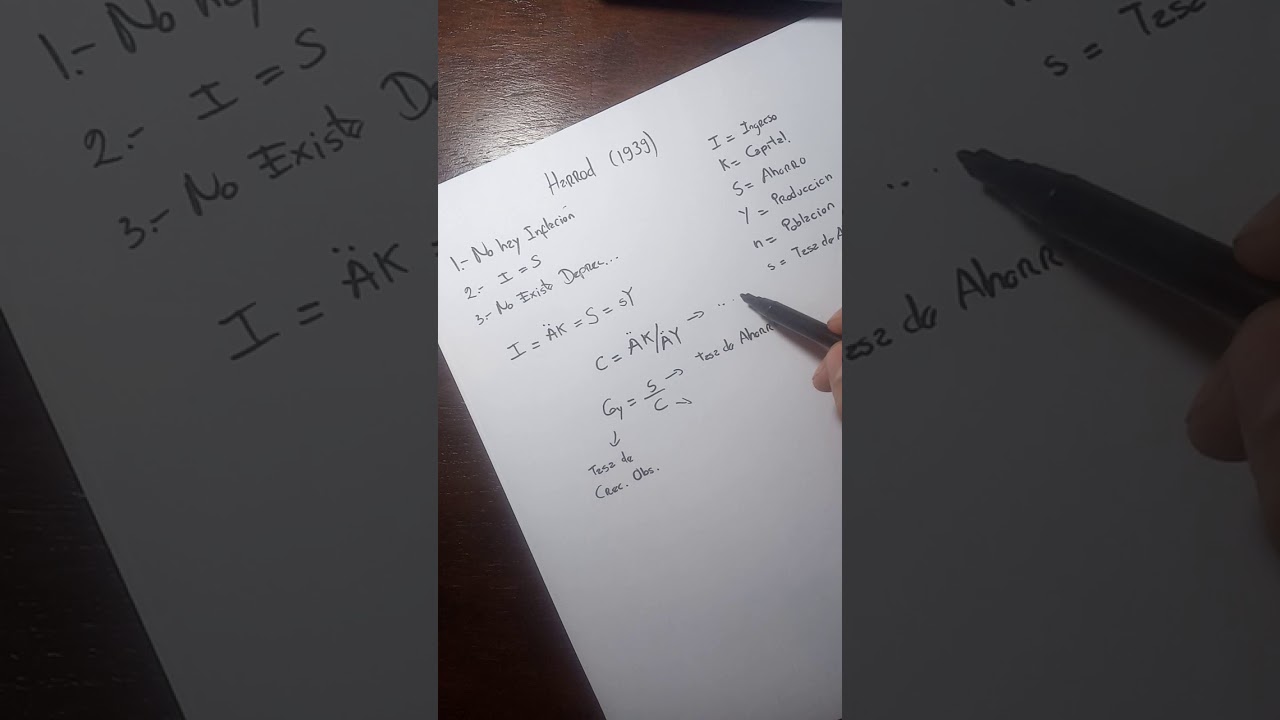 Harrod (1939)
1.- No hay Inflación
2.- I = S
3.- No Existe Deprec...
I = ÄK = S = sY
C = ÄK/ÄY → ...
Gy = s/C → tasa de Ahorr
↓
Tasa de
Crec. Obs.
I = Ingreso
K = Capital.
S = Ahorro
Y = Produccion
n = Poblacion
s = Tasa de A
1.- No hay
2.- I = S
3.- No Existe De
I = ÄK =
s = Tasa
asa de Ahorr